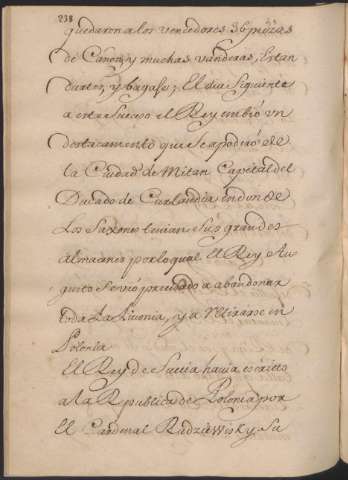 238
quedaron a los vencedores 36 piezas
de Cánon, y muchas vanderas, Estan
dartes, y bagaje; El dia siguiente
a este suceso el Rey embió un
destacamento que se apoderó de
la Ciudad de Mitan Capital del
Ducado de Curlandia en donde
Los Saxones tenian sus grandes
almacenes por lo qual el Rey Au
gusto se vió precisado a abandonar
toda La Livonia, y a retirarse en
Polonia
El Rey de Suecia havia escritto
a la Republica de Polonia por
El Cardenal Radziewisky su